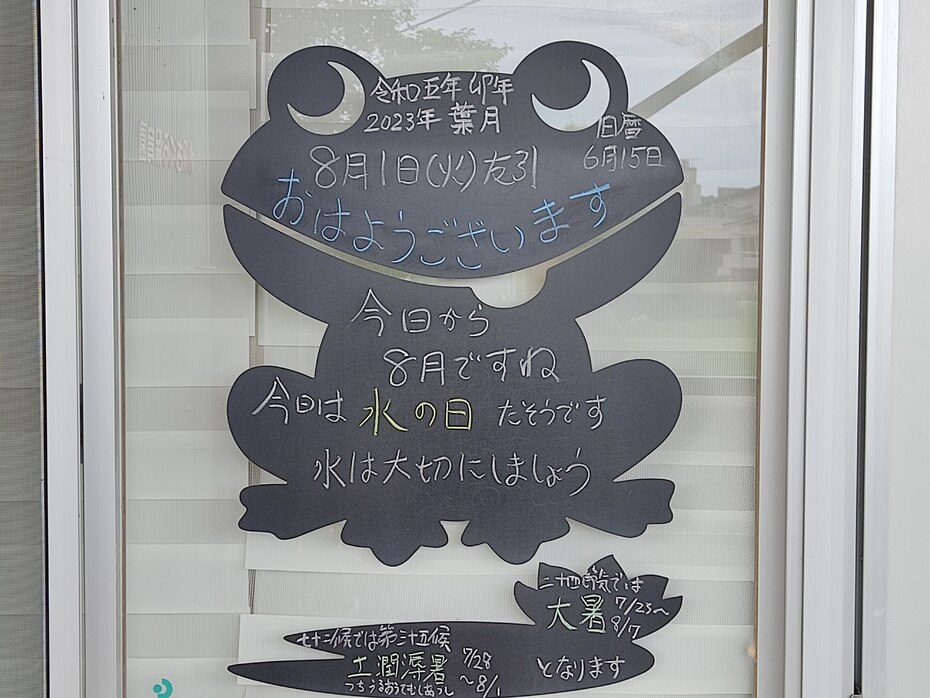 令和五年 卯年
2023年 葉月
旧暦
6月15日
8月1日(火)友引
おはようございます
今日から
8月ですね
今日は 水の日 だそうです
水は大切にしましょう
二十四節気では
大暑 7/23〜
8/7
七十二候では第三十五候
土潤溽暑 7/28
〜8/1
つちうるおうてむしあつし
となります